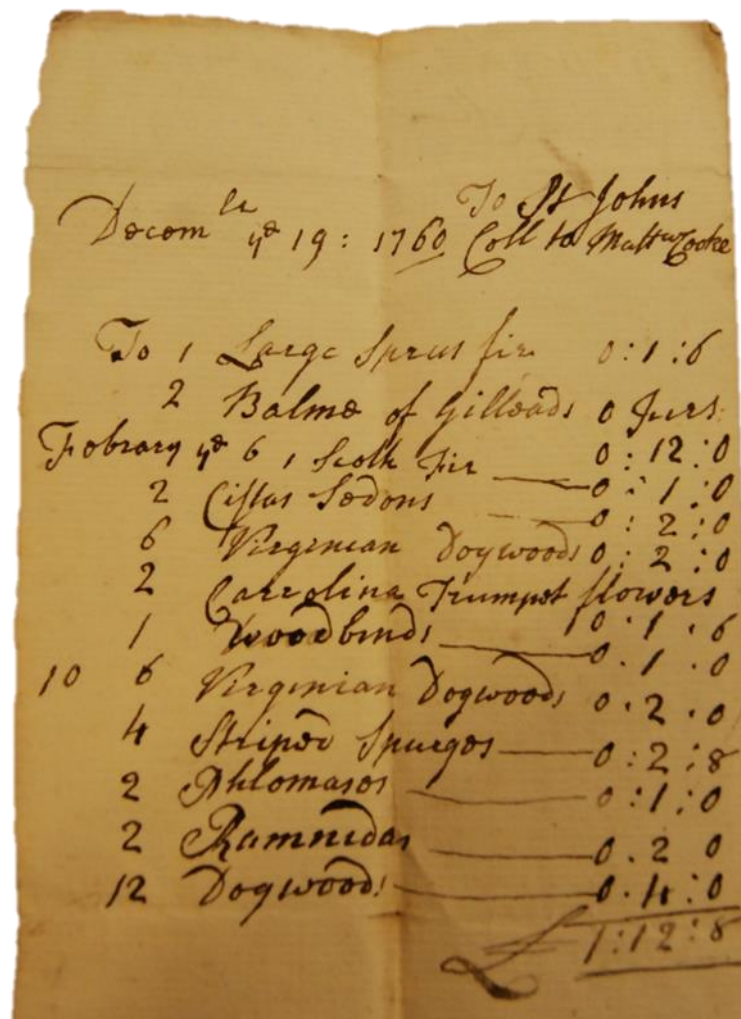 To St Johns
Decem^br y^e 19 : 1760 Coll to Matt^w Cooke
To 1 Large Sprus fir 0 : 1 : 6
2 Balme of Gilleads 0 firrs
Febrary y^e 6 1 Scoth Fir 0 : 12 : 0
2 Cistus Sedons 0 : 1 : 0
0 : 2 : 0
6 Virginian Dogwoods 0 : 2 : 0
2 Carrolina Trumpet flowers
1 Woodbinds 0 : 1 : 6
0 : 1 : 0
10 6 Virginian Dogwoods 0 : 2 : 0
4 Striped Spurges 0 : 2 : 8
2 Phlomases 0 : 1 : 0
2 Ramnidas 0 : 2 0
12 Dogwoods 0 : 4 : 0
£ 1 : 12 : 8